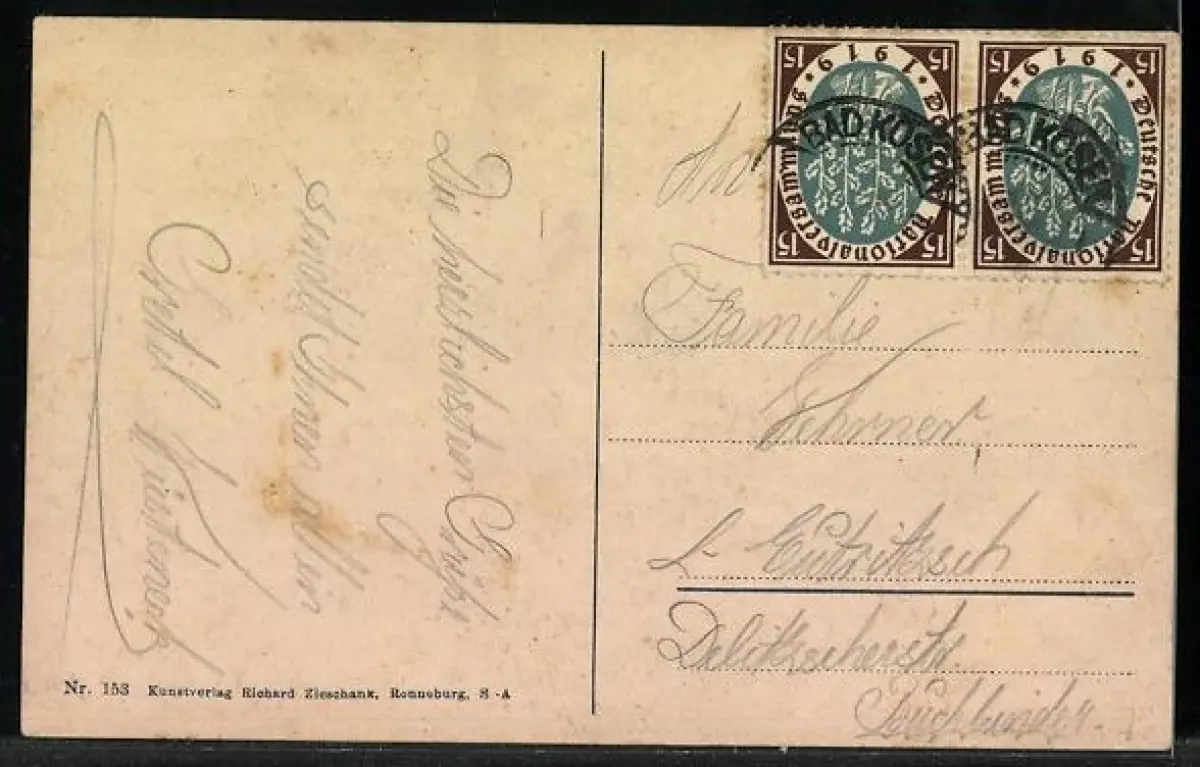 Die herzlichsten Grüße
sendet Ihnen allen
15 Deutsche Nationalversammlung 1919 15
15 15
15 Deutsche Nationalversammlung 1919 15
15 15
BAD KÖSEN
BAD KÖSEN
An
Familie
L- Eutritzsch
Delitzscherstr.
Buchbinder.
Nr. 153 Kunstverlag Richard Zieschank, Ronneburg, S.-A